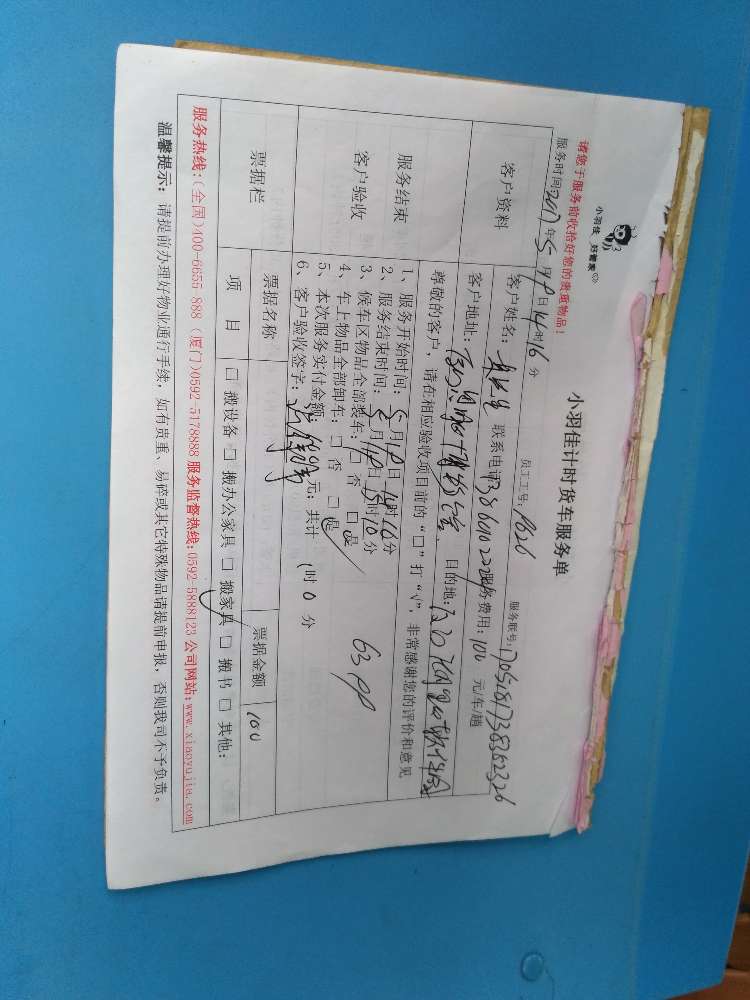 小羽佳 好管家
小羽佳计时货车服务单
请您于服务前收拾好您的贵重物品！
员工工号：1626
服务联号：
服务时间2017年5月19日14时16分
客户资料
客户姓名： 联系电话 服务费用：100 元/车/趟
客户地址： 目的地：
尊敬的客户，请在相应验收项目前的“□”打“√”，非常感谢您的评价和意见
服务结束
客户验收
1、服务开始时间：5月19日14时16分
2、服务结束时间：5月19日15时16分
3、候车区物品全部装车：□ 否 □ 是
4、车上物品全部卸车：□ 否 □ 是
5、本次服务实付金额： 元；共计 1时0分
6、客户验收签字：
票据栏
票据名称
票据金额 100
项 目
□ 搬设备 □ 搬办公家具 □ 搬家具 □ 搬书 □ 其他：
服务热线：(全国)400-6655 888 (厦门)0592-5178888 服务监督热线：0592-5888123 公司网站：www.xiaoyujia.com
温馨提示： 请提前办理好物业通行手续，如有贵重、易碎或其它特殊物品请提前申报，否则我司不予负责。